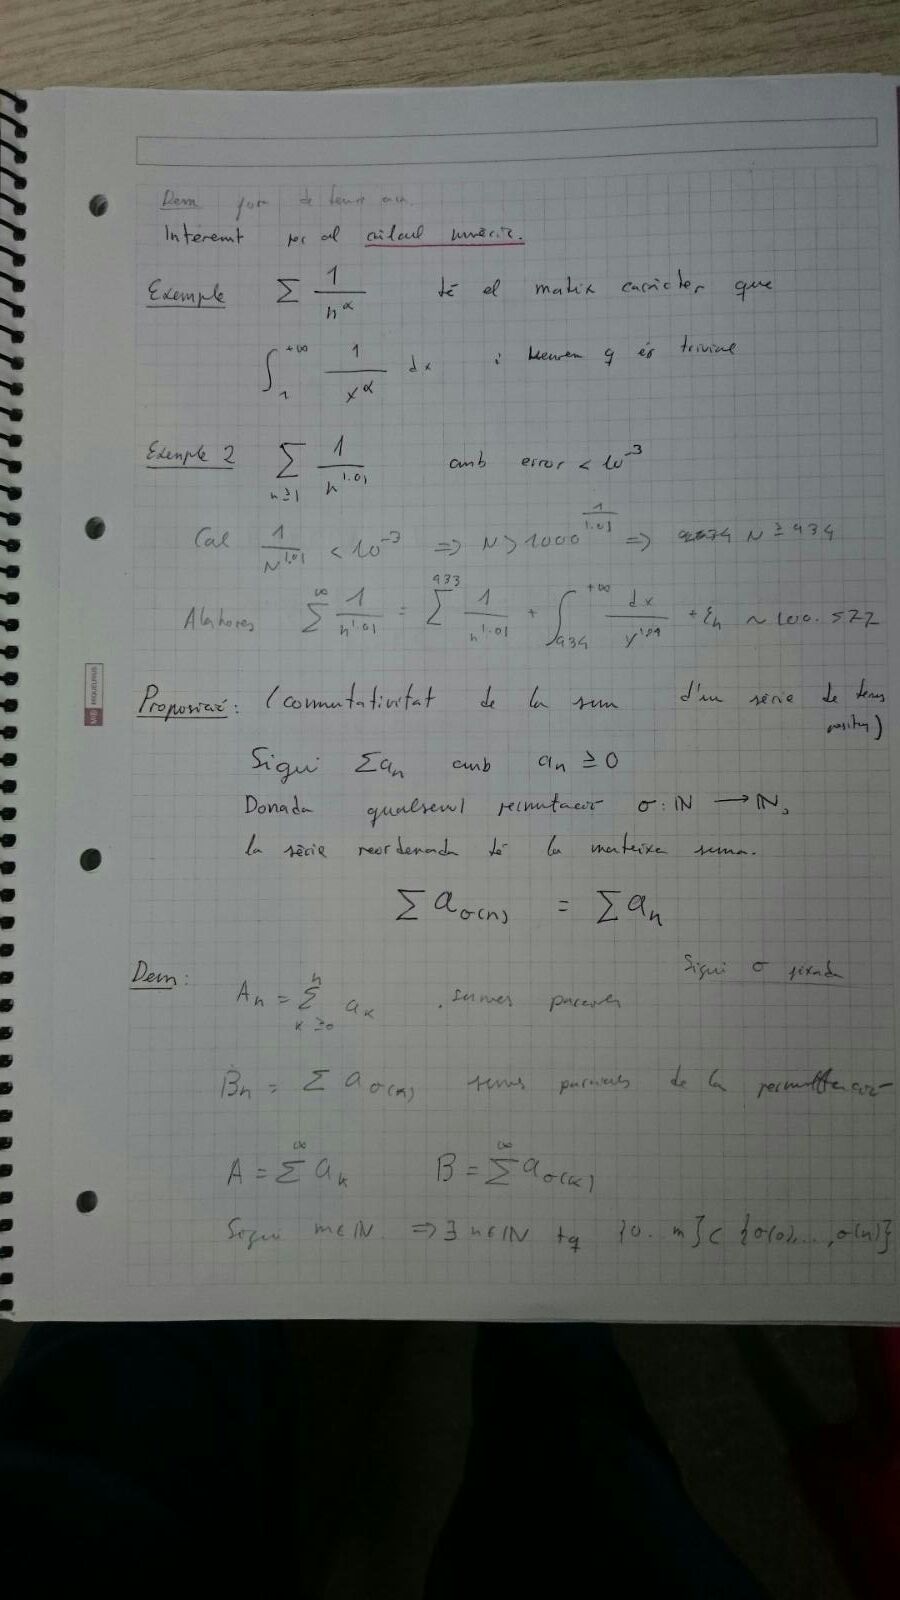 Dem
Interemt per al càlcul numèric.
Exemple ∑ 1/n^α té el mateix caràcter que
∫_1^{+∞} 1/x^α dx i veurem q és trivial
Exemple 2 ∑_{n≥1} 1/n^{1.01} amb error < 10^{-3}
Cal 1/N^{1.01} < 10^{-3} ⇒ N > 1000^{1/1.01} ⇒ N ≥ 934
Aleshores ∑^∞ 1/n^{1.01} = ∑^{933} 1/n^{1.01} + ∫_{934}^{+∞} dx/x^{1.01} + ε_n ~ 100.577
Proposició: (conmutativitat de la sum d'un sèrie de termes
positius)
Sigui ∑a_n amb a_n ≥ 0
Donada qualsevol permutació σ: ℕ → ℕ,
la sèrie reordenada té la mateixa suma.
∑ a_{σ(n)} = ∑ a_n
Sigui σ fixada
Dem: A_n = ∑_{k≥0}^n a_k . sumes parcials
B_n = ∑ a_{σ(k)} sumes parcials de la permutació
A = ∑^∞ a_k B = ∑^∞ a_{σ(k)}
Sigui m∈ℕ ⇒ ∃ n∈ℕ tq {0..m} ⊂ {σ(0), ..., σ(n)}
MIQUELRIUS